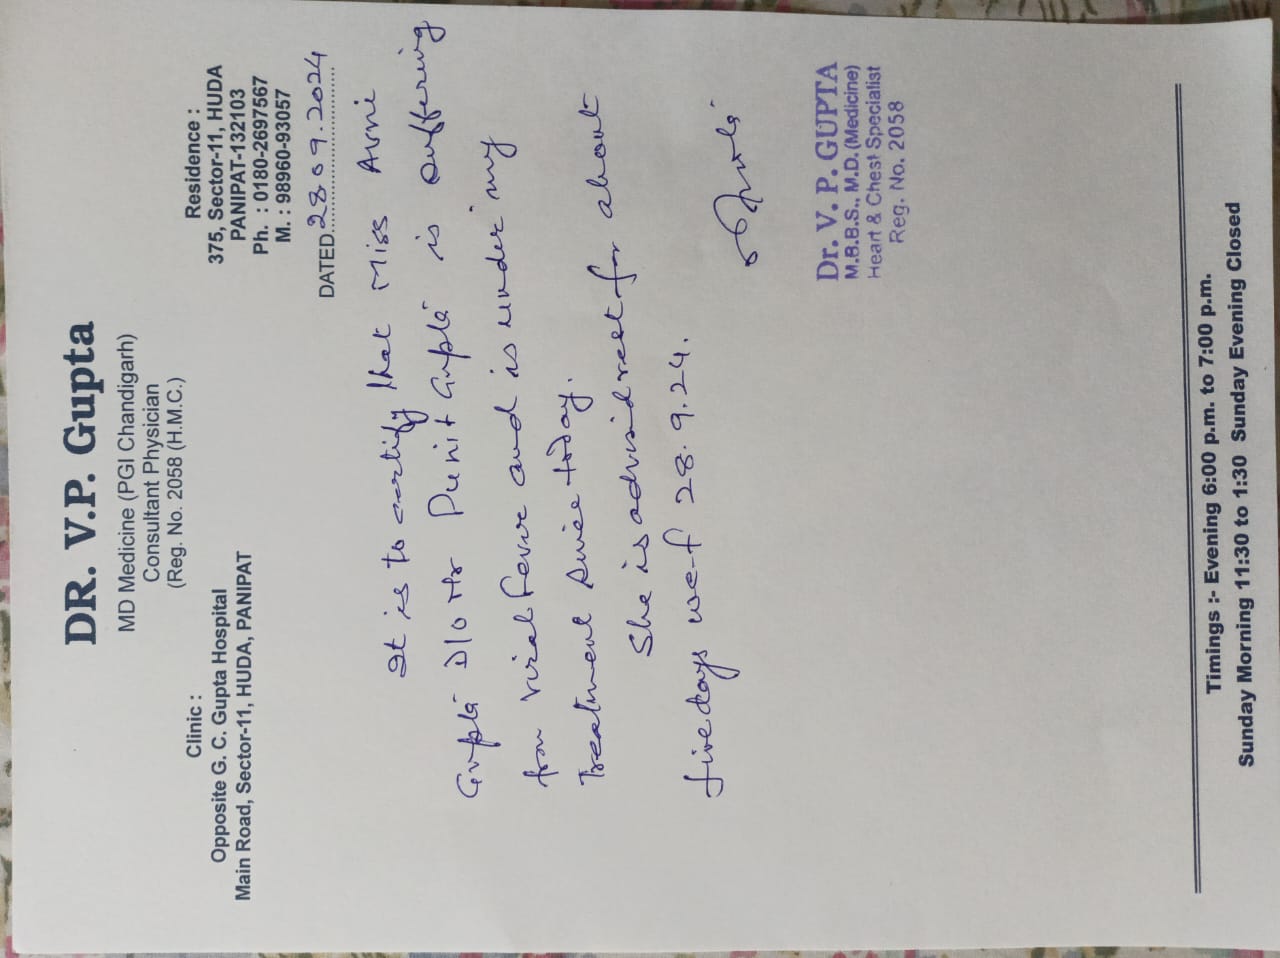 DR. V.P. Gupta
MD Medicine (PGI Chandigarh)
Consultant Physician
(Reg. No. 2058 (H.M.C.)
Clinic :
Opposite G. C. Gupta Hospital
Main Road, Sector-11, HUDA, PANIPAT
Residence :
375, Sector-11, HUDA
PANIPAT-132103
Ph. : 0180-2697567
M. : 98960-93057
DATED 28.09.2024
It is to certify that Miss Avni
Gupta D/o Mr Punit Gupta is suffering
from Viral Fever and is under my
Treatment since today.
She is advised rest for about
five days wef 28.9.24.
Dr. V. P. GUPTA
M.B.B.S., M.D. (Medicine)
Heart & Chest Specialist
Reg. No. 2058
Timings :- Evening 6:00 p.m. to 7:00 p.m.
Sunday Morning 11:30 to 1:30 Sunday Evening Closed